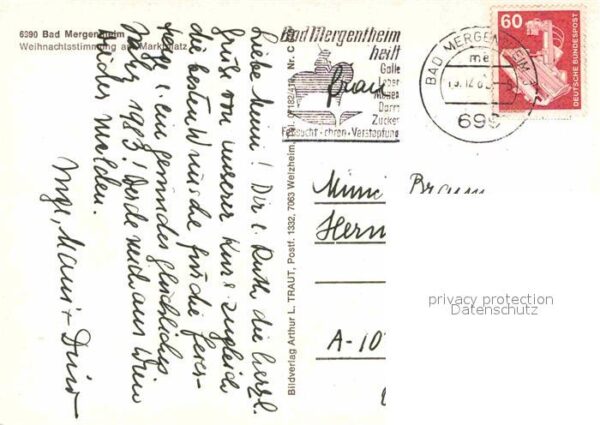 6990 Bad Mergentheim
Weihnachtsstimmung am Marktplatz
Liebe Mimi! Dir u. Ruth die herzl.
Grüße von unserer Kur & zugleich
die besten Wünsche für die Feier-
tage u. ein gesundes glückliches
Jahr 1983! Werde mich aus Wien
wieder melden.
Inge, Mausi +
Bildverlag Arthur L. TRAUT, Postf. 1332, 7063 Welzheim, 07182/410, Nr. C
Bad Mergentheim
heilt
Galle
Leber
Magen
Darm
Zucker
Fettsucht · chron · Verstopfung
Frau
BAD MERGENTHEIM
699
60
DEUTSCHE BUNDESPOST
Mimi Braun
Hern
A-10
privacy protection
Datenschutz